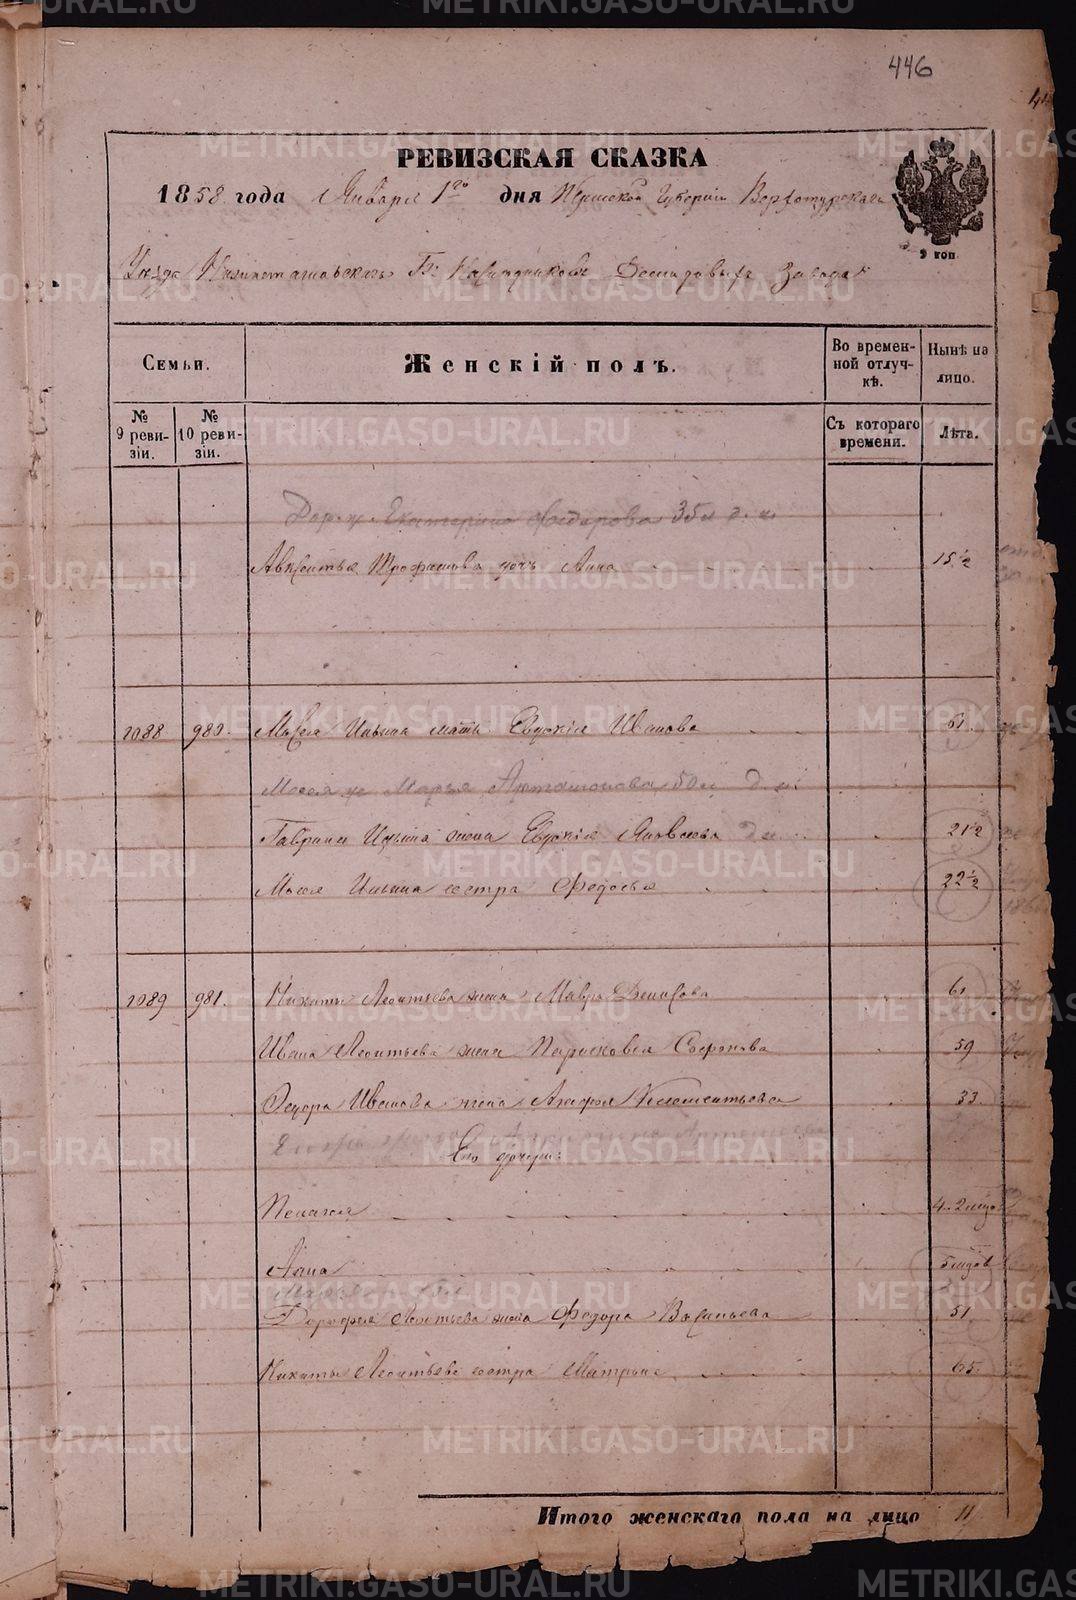 446
РЕВИЗСКАЯ СКАЗКА
1858 года Января 1го дня Пермской Губернии Верхотурскаго
Уезда Нижнетагильскаго Гг. Наследников Демидовых Завода
9 коп.
Семьи.
Женскій полъ.
Во временной отлучкѣ.
Нынѣ на лицо.
№ 9 ревизіи.
№ 10 ревизіи.
Съ котораго времени.
Лѣта.
Екатерина Федорова 35
Авксентья Трофимова дочь Анна 15½
1088 980. Мосея Ильина мать Евдокія Иванова 51.
Мосея ж Марья 50
Гаврила Ильина жена Евдокія Яковлева 21½
Мосея Ильина сестра Федосья 22½
1089 981. Никиты Леонтьева жена Мавра Денисова 61
Ивана Леонтьева жена Парасковья Сафонова 59
Федора Иванова жена Агафья Клементьева 33.
Его дочери:
Пелагея 4. 2 мцов
Анна 5 мцов
Марья
Дорофея Леонтьева жена Федора Васильева 51.
Никиты Леонтьева сестра Матрына 65.
Итого женскаго пола на лицо 11
METRIKI.GASO-URAL.RU